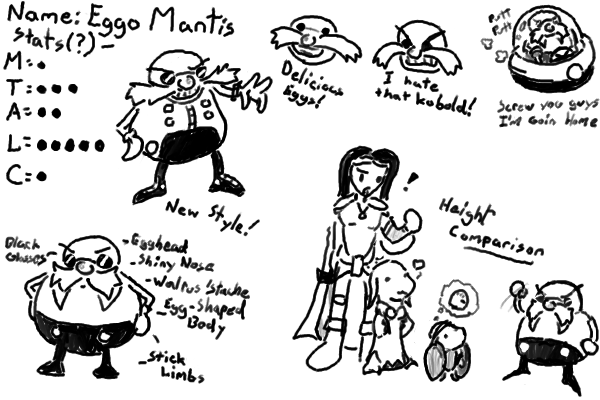 Name: Eggo Mantis
Stats(?)-
M=•
T=•••
A=••
L=•••••
C=•
New Style!
Delicious
Eggs!
I hate
that kobold!
Putt
Putt
Screw you guys
I'm goin Home
Black
Glasses-
-Egghead
-Shiny Nose
-Walrus 'stache
-Egg-Shaped
Body
-Stick
Limbs
!
Height
Comparison